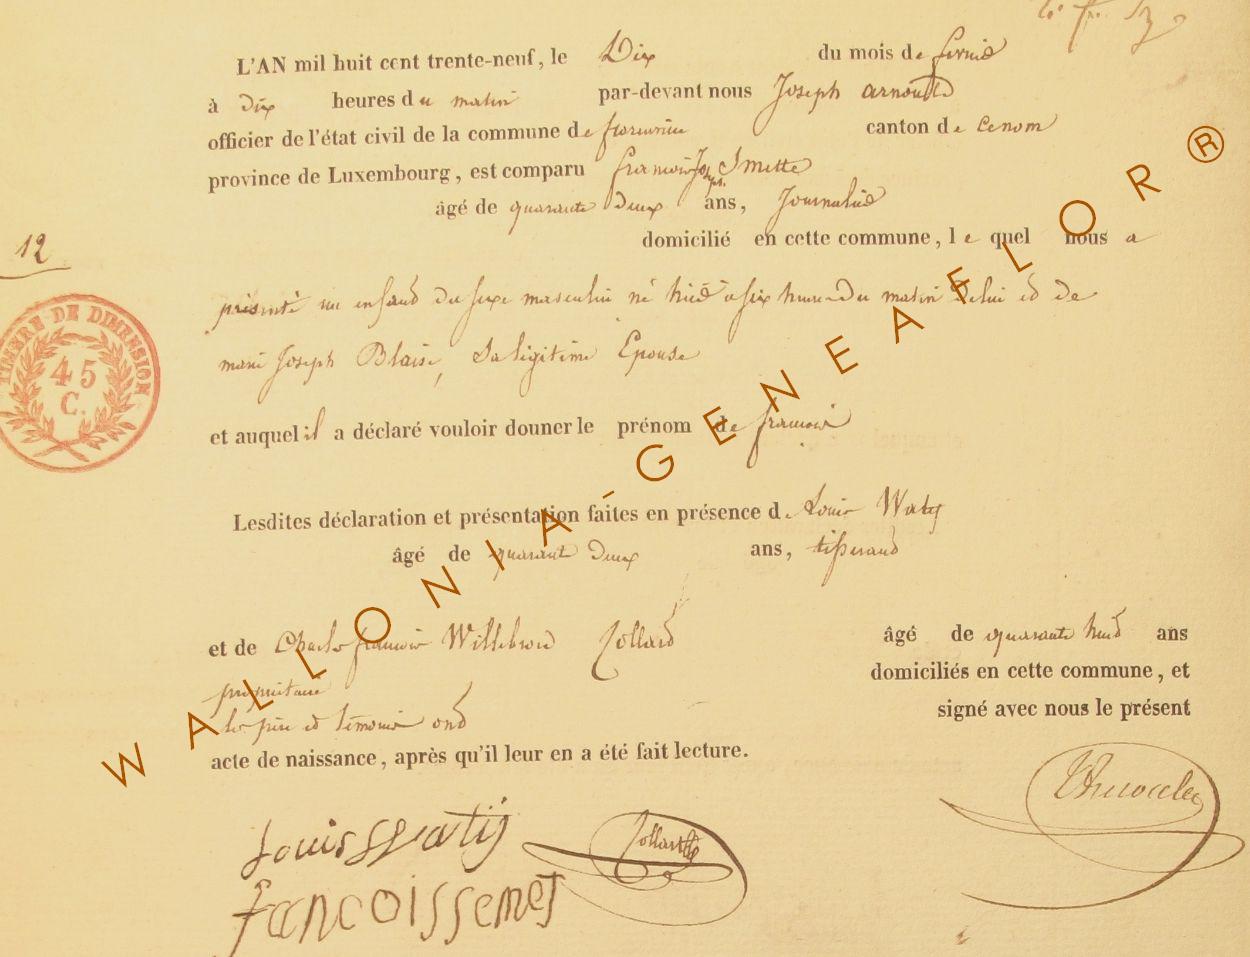 L'AN mil huit cent trente-neuf, le Dix du mois de fevrier
à dix heures du matin par-devant nous Joseph arnould
officier de l'état civil de la commune de florenville canton de
province de Luxembourg, est comparu francois Jos. Smette
âgé de quarante deux ans, Journalier
domicilié en cette commune, le quel nous a
12
présenté un enfand du sexe masculin né hier à six heure du matin de lui et de
TIMBRE DE DIMENSION
45
C.
marie Joseph Blaise, Sa légitime Epouse
et auquel il a déclaré vouloir donner le prénom de francois
Lesdites déclaration et présentation faites en présence de Louis Watiy
âgé de quarante deux ans, tisserand
et de Charles francois Willebrord Collard âgé de quarante huid ans
propriétaire domiciliés en cette commune, et
les père et témoins ond signé avec nous le présent
acte de naissance, après qu'il leur en a été fait lecture.
Louis Watiy
Collard
WALLONIA-GENEAFLOR®